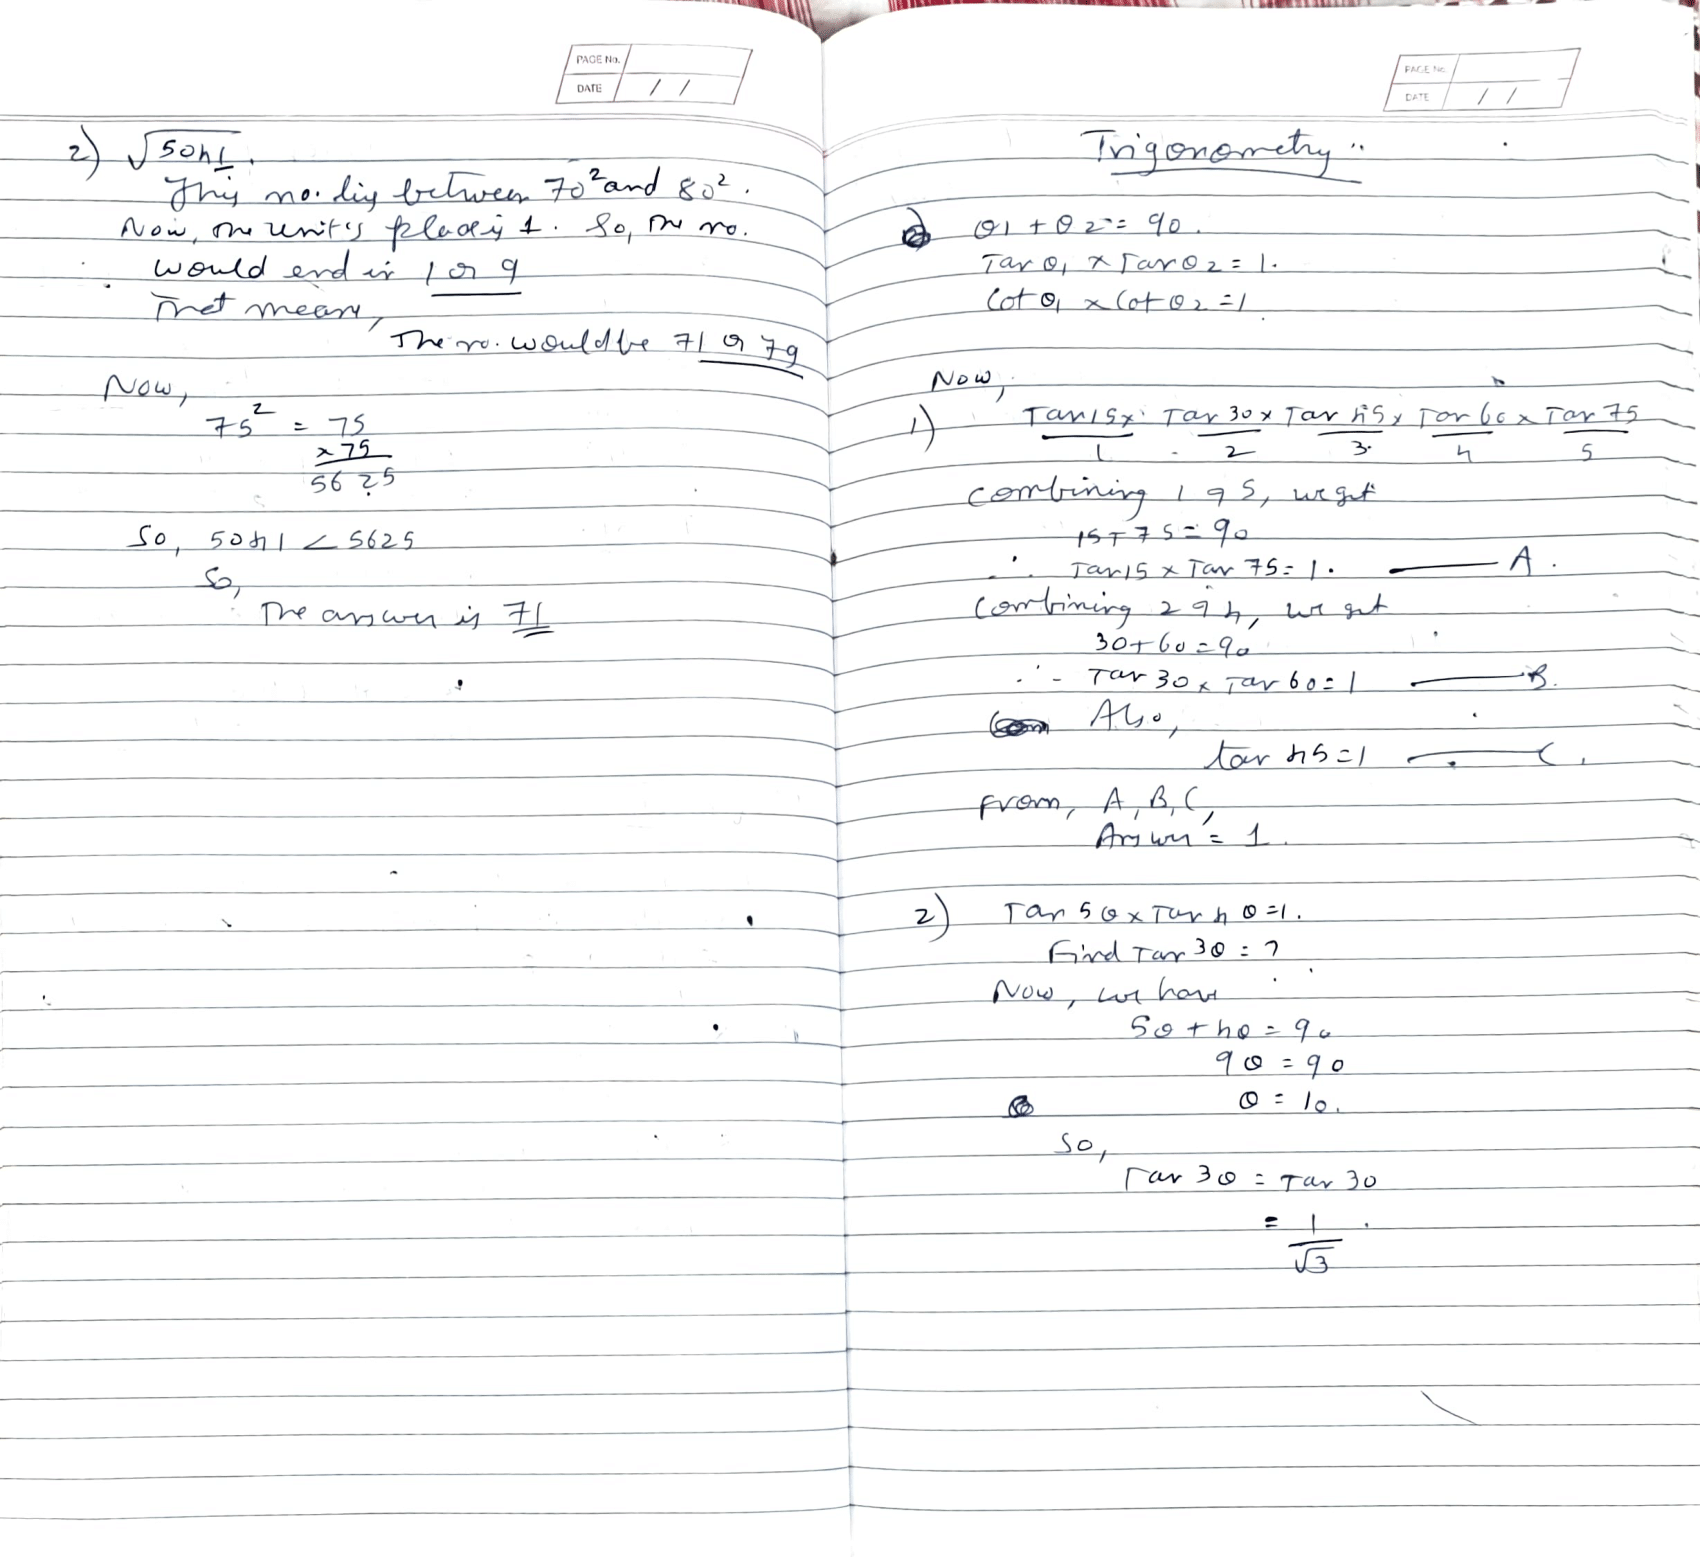 PAGE No.
DATE / /
2) √5041.
This no. lies between 70² and 80².
Now, the unit's place is 1. So, the no.
would end in 1 or 9
That means,
The no. would be 71 or 79
Now,
75² = 75
x 75
5625
So, 5041 < 5625
So,
The answer is 71
PAGE No.
DATE / /
Trigonometry
θ1 + θ2 = 90.
Tan θ1 x Tan θ2 = 1.
Cot θ1 x Cot θ2 = 1
Now,
1) Tan 15 x Tan 30 x Tan 45 x Tan 60 x Tan 75
1 2 3. 4 5
Combining 1 & 5, we get
15 + 75 = 90
∴ Tan 15 x Tan 75 = 1. — A.
Combining 2 & 4, we get
30 + 60 = 90
∴ Tan 30 x Tan 60 = 1 — B.
Also,
tan 45 = 1 — C.
From, A, B, C,
Answer = 1.
2) Tan 5θ x Tan 4θ = 1.
Find Tan 3θ = ?
Now, we have
5θ + 4θ = 90
9θ = 90
θ = 10.
So,
Tan 3θ = Tan 30
= 1
√3